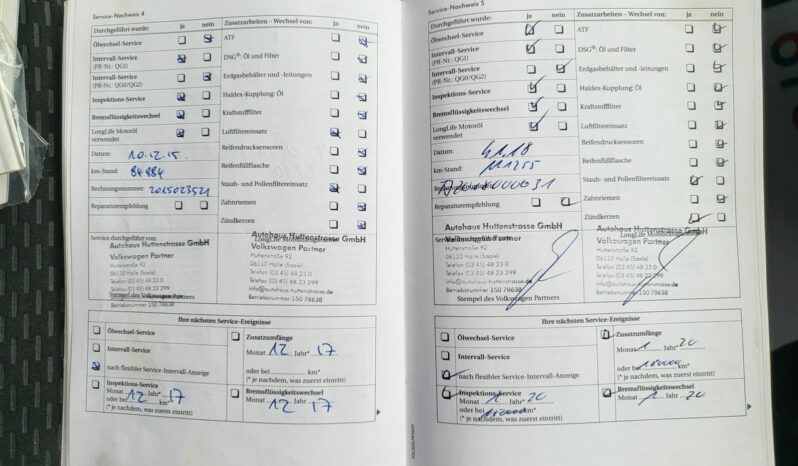 Service-Nachweis 4
Durchgeführt wurde: ja nein
Zusatzarbeiten – Wechsel von: ja nein
Ölwechsel-Service
Intervall-Service
(PR-Nr.: QG1)
Intervall-Service
(PR-Nr.: QG0/QG2)
Inspektions-Service
Bremsflüssigkeitswechsel
LongLife Motoröl
verwendet
Datum: 10.12.15
km-Stand: 84884
Rechnungsnummer: 2015023521
Reparaturempfehlung
ATF
DSG®: Öl und Filter
Erdgasbehälter und -leitungen
Haldex-Kupplung: Öl
Kraftstofffilter
Luftfiltereinsatz
Reifendrucksensoren
Reifenfüllflasche
Staub- und Pollenfiltereinsatz
Zahnriemen
Zündkerzen
Service durchgeführt von:
Autohaus Huttenstrasse GmbH
Volkswagen Partner
Huttenstraße 92
06110 Halle (Saale)
Telefon (03 45) 48 23 0
Telefax (03 45) 48 23 299
info@autohaus-huttenstrasse.de
Betriebsnummer 150 78638
Stempel des Volkswagen
LongLife Mobilitätsgarantie
Autohaus Huttenstrasse GmbH
Volkswagen Partner
Huttenstraße 92
06110 Halle (Saale)
Telefon (03 45) 48 23 0
Telefax (03 45) 48 23 299
info@autohaus-huttenstrasse.de
Betriebsnummer 150 78638
Ihre nächsten Service-Ereignisse
Ölwechsel-Service
Intervall-Service
nach flexibler Service-Intervall-Anzeige
Inspektions-Service
Monat 12 Jahr* 17
oder bei km*
(* je nachdem, was zuerst eintritt)
Zusatzumfänge
Monat 12 Jahr* 17
oder bei km*
(* je nachdem, was zuerst eintritt)
Bremsflüssigkeitswechsel
Monat 12 Jahr 17
Service-Nachweis 5
Durchgeführt wurde: ja nein
Zusatzarbeiten – Wechsel von: ja nein
Ölwechsel-Service
Intervall-Service
(PR-Nr.: QG1)
Intervall-Service
(PR-Nr.: QG0/QG2)
Inspektions-Service
Bremsflüssigkeitswechsel
LongLife Motoröl
verwendet
Datum: 4.1.18
km-Stand: 111255
Reparaturempfehlung
ATF
DSG®: Öl und Filter
Erdgasbehälter und -leitungen
Haldex-Kupplung: Öl
Kraftstofffilter
Luftfiltereinsatz
Reifendrucksensoren
Reifenfüllflasche
Staub- und Pollenfiltereinsatz
Zahnriemen
Zündkerzen
Autohaus Huttenstrasse GmbH
Volkswagen Partner
Huttenstraße 92
06110 Halle (Saale)
Telefon (03 45) 48 23 0
Telefax (03 45) 48 23 299
info@autohaus-huttenstrasse.de
Betriebsnummer 150 78638
Stempel des Volkswagen Partners
LongLife Mobilitätsgarantie
Autohaus Huttenstrasse GmbH
Volkswagen Partner
Huttenstraße 92
06110 Halle (Saale)
Telefon (03 45) 48 23 0
Telefax (03 45) 48 23 299
info@autohaus-huttenstrasse.de
Betriebsnummer 150 78638
Ihre nächsten Service-Ereignisse
Ölwechsel-Service
Intervall-Service
nach flexibler Service-Intervall-Anzeige
Inspektions-Service
Monat 1 Jahr* 20
oder bei km*
(* je nachdem, was zuerst eintritt)
Zusatzumfänge
Monat 1 Jahr* 20
oder bei km*
(* je nachdem, was zuerst eintritt)
Bremsflüssigkeitswechsel
Monat 1 Jahr 20